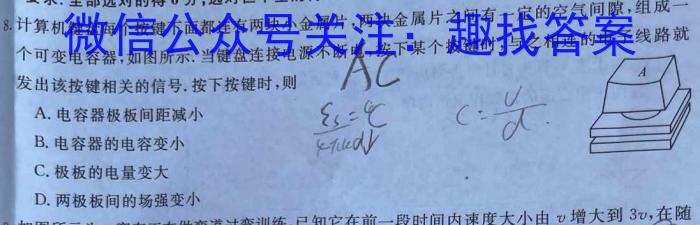 要求. 全部选对的得6分, 选对
8. 计算机键盘每个按键下面都连有两块小金属片, 两块金属片之间有一定的空气间隙, 组成一
微信公众号关注：趣找答案
个可变电容器, 如图所示. 当键盘连接电源不断电, 按下某个按键时, 与之相连的电子线路就
发出该按键相关的信号. 按下按键时, 则
AC
A
A. 电容器极板间距减小
B. 电容器的电容变小
C. 极板的电量变大
D. 两极板间的场强变小
已知它在前一段时间内速度大小由 v 增大到 3v, 在随